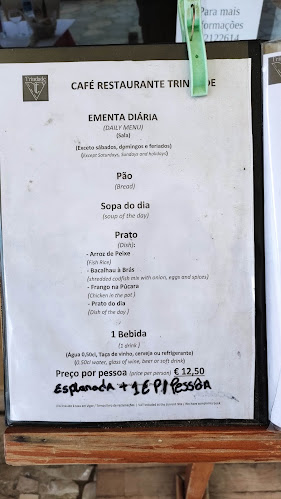 Para mais
formações
2122614
Trindade
CAFÉ RESTAURANTE TRIN DE
EMENTA DIÁRIA
(DAILY MENU)
(Sala)
(Exceto sábados, domingos e feriados)
(Except Saturdays, Sundays and holidays)
Pão
(Bread)
Sopa do dia
(soup of the day)
Prato
(Dish):
- Arroz de Peixe
(Fish Rice)
- Bacalhau à Brás
(shredded codfish mix with onion, eggs and spices)
- Frango na Púcara
(Chicken in the pot )
- Prato do dia
(Dish of the day )
1 Bebida
(1 drink )
(Água 0,50cl, Taça de vinho, cerveja ou refrigerante)
(0.50cl water, glass of wine, beer or soft drink)
Preço por pessoa (price per person) € 12,50
Esplanada + 1 € P/ Pessoa